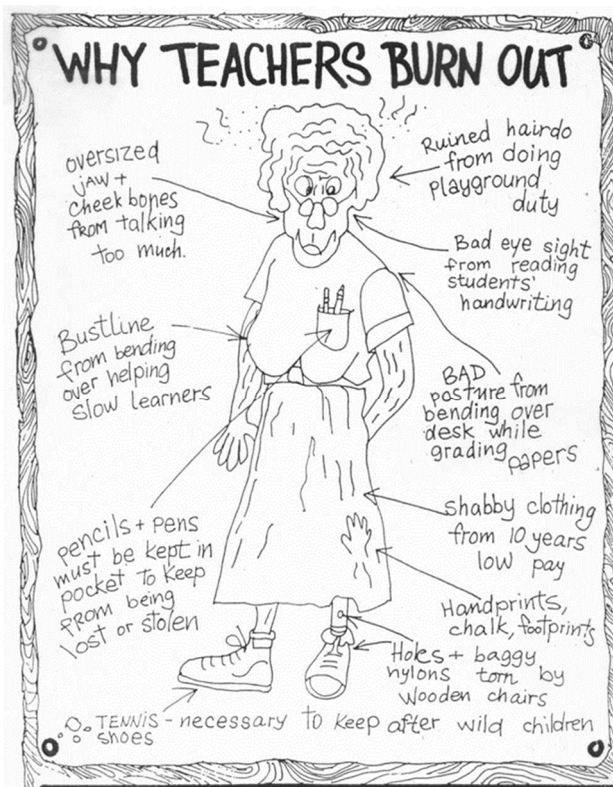 WHY TEACHERS BURN OUT
oversized
jaw +
cheek bones
from talking
too much.
Ruined hairdo
from doing
playground
duty
Bad eye sight
from reading
students'
handwriting
Bustline
from bending
over helping
slow learners
BAD
posture from
bending over
desk while
grading
papers
pencils + pens
must be kept in
pocket to keep
from being
lost or stolen
shabby clothing
from 10 years
low pay
Handprints,
chalk, footprints
Holes + baggy
nylons torn by
wooden chairs
TENNIS - necessary to keep after wild children
shoes